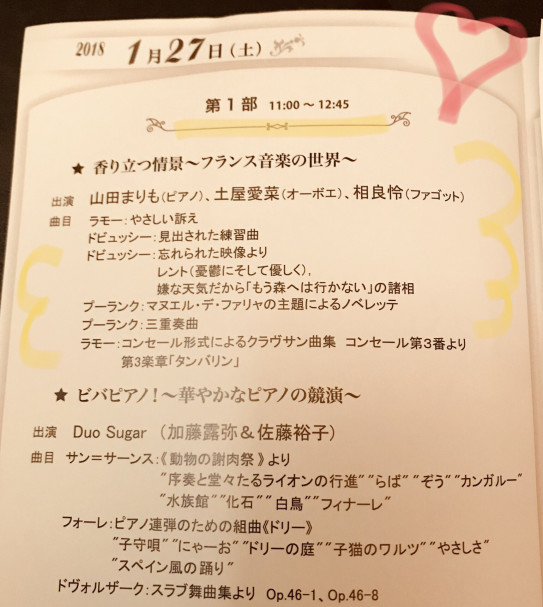 2018 1月27日(土)
第1部 11:00～12:45
★ 香り立つ情景～フランス音楽の世界～
出演 山田まりも(ピアノ)、土屋愛菜(オーボエ)、相良怜(ファゴット)
曲目 ラモー:やさしい訴え
ドビュッシー:見出された練習曲
ドビュッシー:忘れられた映像より
レント(憂鬱にそして優しく),
嫌な天気だから「もう森へは行かない」の諸相
プーランク:マヌエル・デ・ファリャの主題によるノベレッテ
プーランク:三重奏曲
ラモー:コンセール形式によるクラヴサン曲集 コンセール第3番より
第3楽章「タンバリン」
★ ビバピアノ!～華やかなピアノの競演～
出演 Duo Sugar (加藤露弥&佐藤裕子)
曲目 サン=サーンス:《動物の謝肉祭》より
"序奏と堂々たるライオンの行進""らば""ぞう""カンガルー"
"水族館""化石""白鳥""フィナーレ"
フォーレ:ピアノ連弾のための組曲《ドリー》
"子守唄""にゃーお""ドリーの庭""子猫のワルツ""やさしさ"
"スペイン風の踊り"
ドヴォルザーク:スラブ舞曲集より Op.46-1、Op.46-8